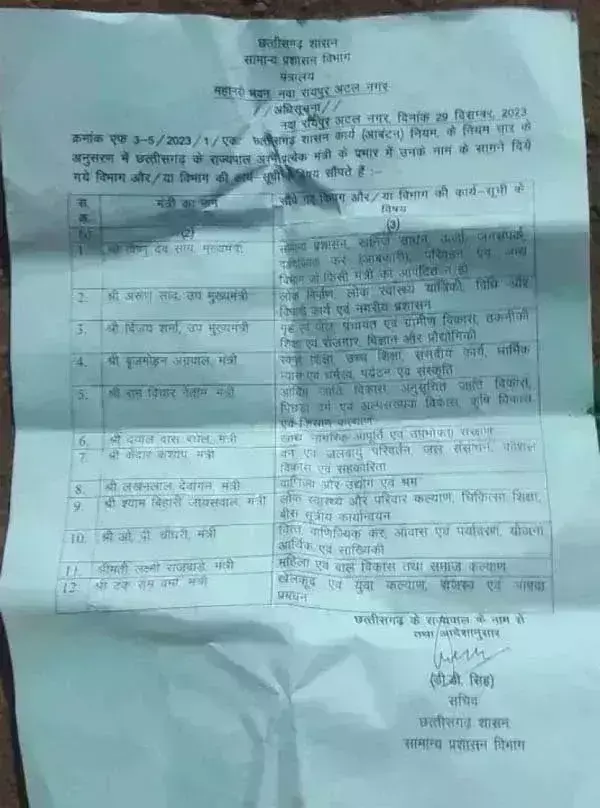 छत्तीसगढ़ शासन
सामान्य प्रशासन विभाग
मंत्रालय
महानदी भवन, नवा रायपुर अटल नगर
//अधिसूचना//
नवा रायपुर अटल नगर, दिनांक 29 दिसम्बर, 2023
क्रमांक एफ 3-5/2023/1/एक: छत्तीसगढ़ शासन कार्य (आबंटन) नियम, के नियम चार के
अनुसरण में छत्तीसगढ़ के राज्यपाल प्रत्येक मंत्री के प्रभार में उनके नाम के सामने दिये
गये विभाग और/या विभाग की कार्य-सूची के विषय सौंपते है :-
स. क्र. मंत्री का नाम सौंपे गए विभाग और/या विभाग की कार्य-सूची के
विषय
(1) (2) (3)
1. श्री विष्णु देव साय, मुख्यमंत्री सामान्य प्रशासन, खनिज साधन, ऊर्जा, जनसंपर्क,
वाणिज्यिक कर (आबकारी), परिवहन एवं अन्य
विभाग जो किसी मंत्री को आबंटित न हो
2. श्री अरुण साव, उप मुख्यमंत्री लोक निर्माण, लोक स्वास्थ्य यांत्रिकी, विधि और
विधायी कार्य एवं नगरीय प्रशासन
3. श्री विजय शर्मा, उप मुख्यमंत्री गृह एवं जेल, पंचायत एवं ग्रामीण विकास, तकनीकी
शिक्षा एवं रोजगार, विज्ञान और प्रौद्योगिकी
4. श्री बृजमोहन अग्रवाल, मंत्री स्कूल शिक्षा, उच्च शिक्षा, संसदीय कार्य, धार्मिक
न्यास एवं धर्मस्व, पर्यटन एवं संस्कृति
5. श्री राम विचार नेताम, मंत्री आदिम जाति विकास, अनुसूचित जाति विकास,
पिछड़ा वर्ग एवं अल्पसंख्यक विकास, कृषि विकास
एवं किसान कल्याण
6. श्री दयाल दास बघेल, मंत्री खाद्य नागरिक आपूर्ति एवं उपभोक्ता संरक्षण
7. श्री केदार कश्यप, मंत्री वन एवं जलवायु परिवर्तन, जल संसाधन, कौशल
विकास एवं सहकारिता
8. श्री लखनलाल देवांगन, मंत्री वाणिज्य और उद्योग एवं श्रम
9. श्री श्याम बिहारी जायसवाल, मंत्री लोक स्वास्थ्य और परिवार कल्याण, चिकित्सा शिक्षा,
बीस सूत्रीय कार्यान्वयन
10. श्री ओ. पी. चौधरी, मंत्री वित्त, वाणिज्यिक कर, आवास एवं पर्यावरण, योजना
आर्थिक एवं सांख्यिकी
11. श्रीमती लक्ष्मी राजवाड़े, मंत्री महिला एवं बाल विकास तथा समाज कल्याण
12. श्री टंक राम वर्मा, मंत्री खेलकूद एवं युवा कल्याण, राजस्व एवं आपदा
प्रबंधन
छत्तीसगढ़ के राज्यपाल के नाम से
तथा आदेशानुसार
(डी.डी. सिंह)
सचिव
छत्तीसगढ़ शासन
सामान्य प्रशासन विभाग